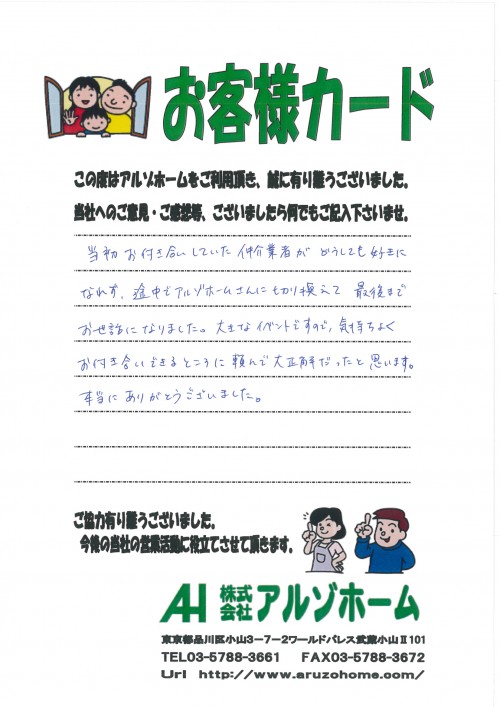 お客様カード
この度はアルゾホームをご利用頂き、誠に有り難うございました。
当社へのご意見・ご感想等、ございましたら何でもご記入下さいませ。
当初お付き合いしていた仲介業者がどうしても好きに
なれず、途中でアルゾホームさんに切り換えて最後まで
お世話になりました。大きなイベントですので、気持ちよく
お付き合いできるところに頼んで大正解だったと思います。
本当にありがとうございました。
ご協力有り難うございました。
今後の当社の営業活動に役立てさせて頂きます。
AH 株式会社 アルゾホーム
東京都品川区小山3-7-2ワールドパレス武蔵小山Ⅱ101
TEL03-5788-3661 FAX03-5788-3672
Url http://www.aruzohome.com/